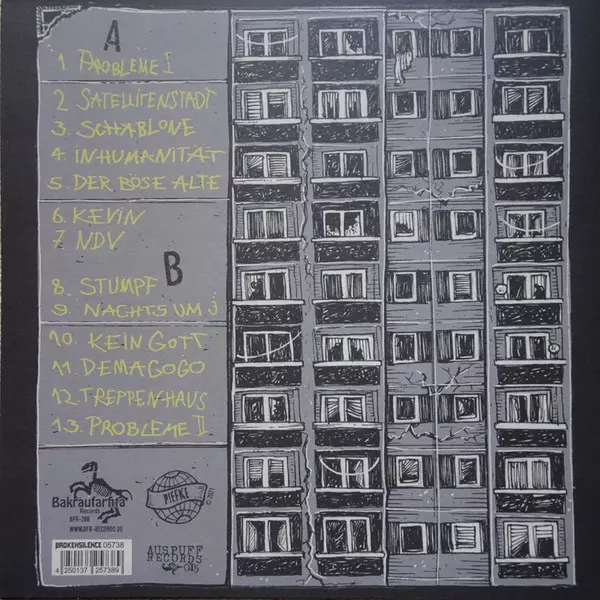 A
1 PROBLEME I
2 SATELLITENSTADT
3. SCHABLONE
4. INHUMANITÄT
5. DER BÖSE ALTE
6. KEVIN
7 NDV
B
8. STUMPF
9. NACHTS UM 3
10. KEIN GOTT
11. DEMAGOGO
12. TREPPENHAUS
13. PROBLEME II
Bakraufarfita
Records
BFR-
WWW.BFR-RECORDS.DE
PIEFKE
BROKENSILENCE 05738
4 250137 257389
AUSPUFF
RECORDS
015